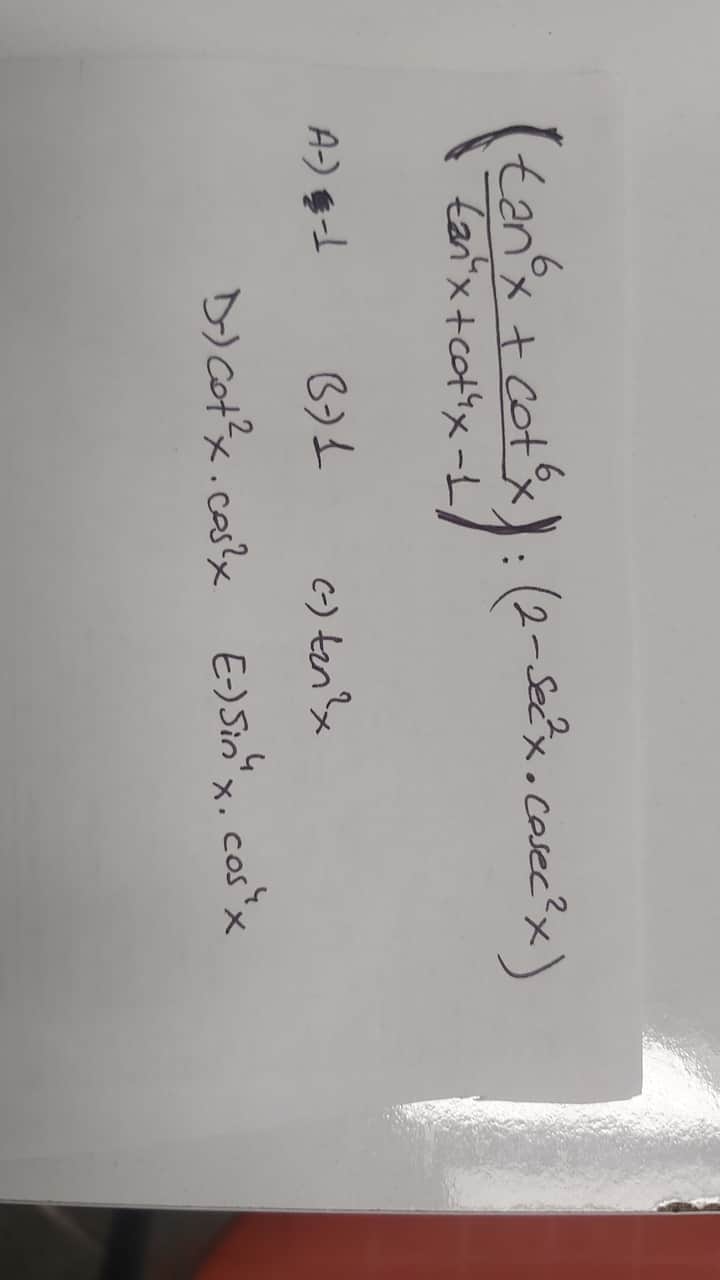 (tan⁶x + cot⁶x / tan⁴x + cot⁴x - 1) : (2 - sec²x . cosec²x)
A-) -1 B-) 1 C-) tan²x
D-) cot²x . cos²x E-) sin⁴x . cos⁴x